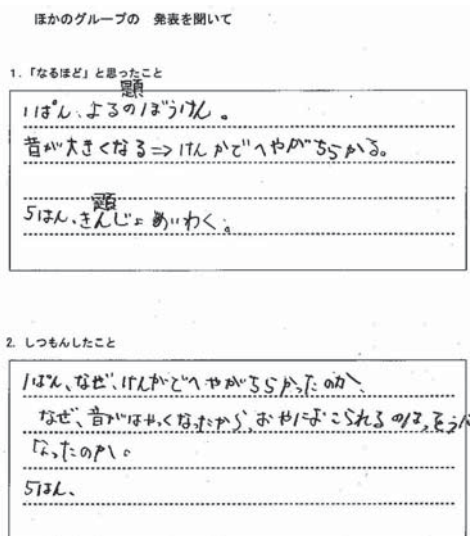 ほかのグループの 発表を聞いて
1. 「なるほど」と思ったこと
題
1ぱん、よるのぼうけん。
音が大きくなる⇒けんかでへやがちらかる。
題
5はん、きんじょめいわく。
2. しつもんしたこと
1ぱん、なぜ、けんかでへやがちらかったのか、
なぜ、音がはやくなったから、おやにおこられる
なったのか。
5はん、